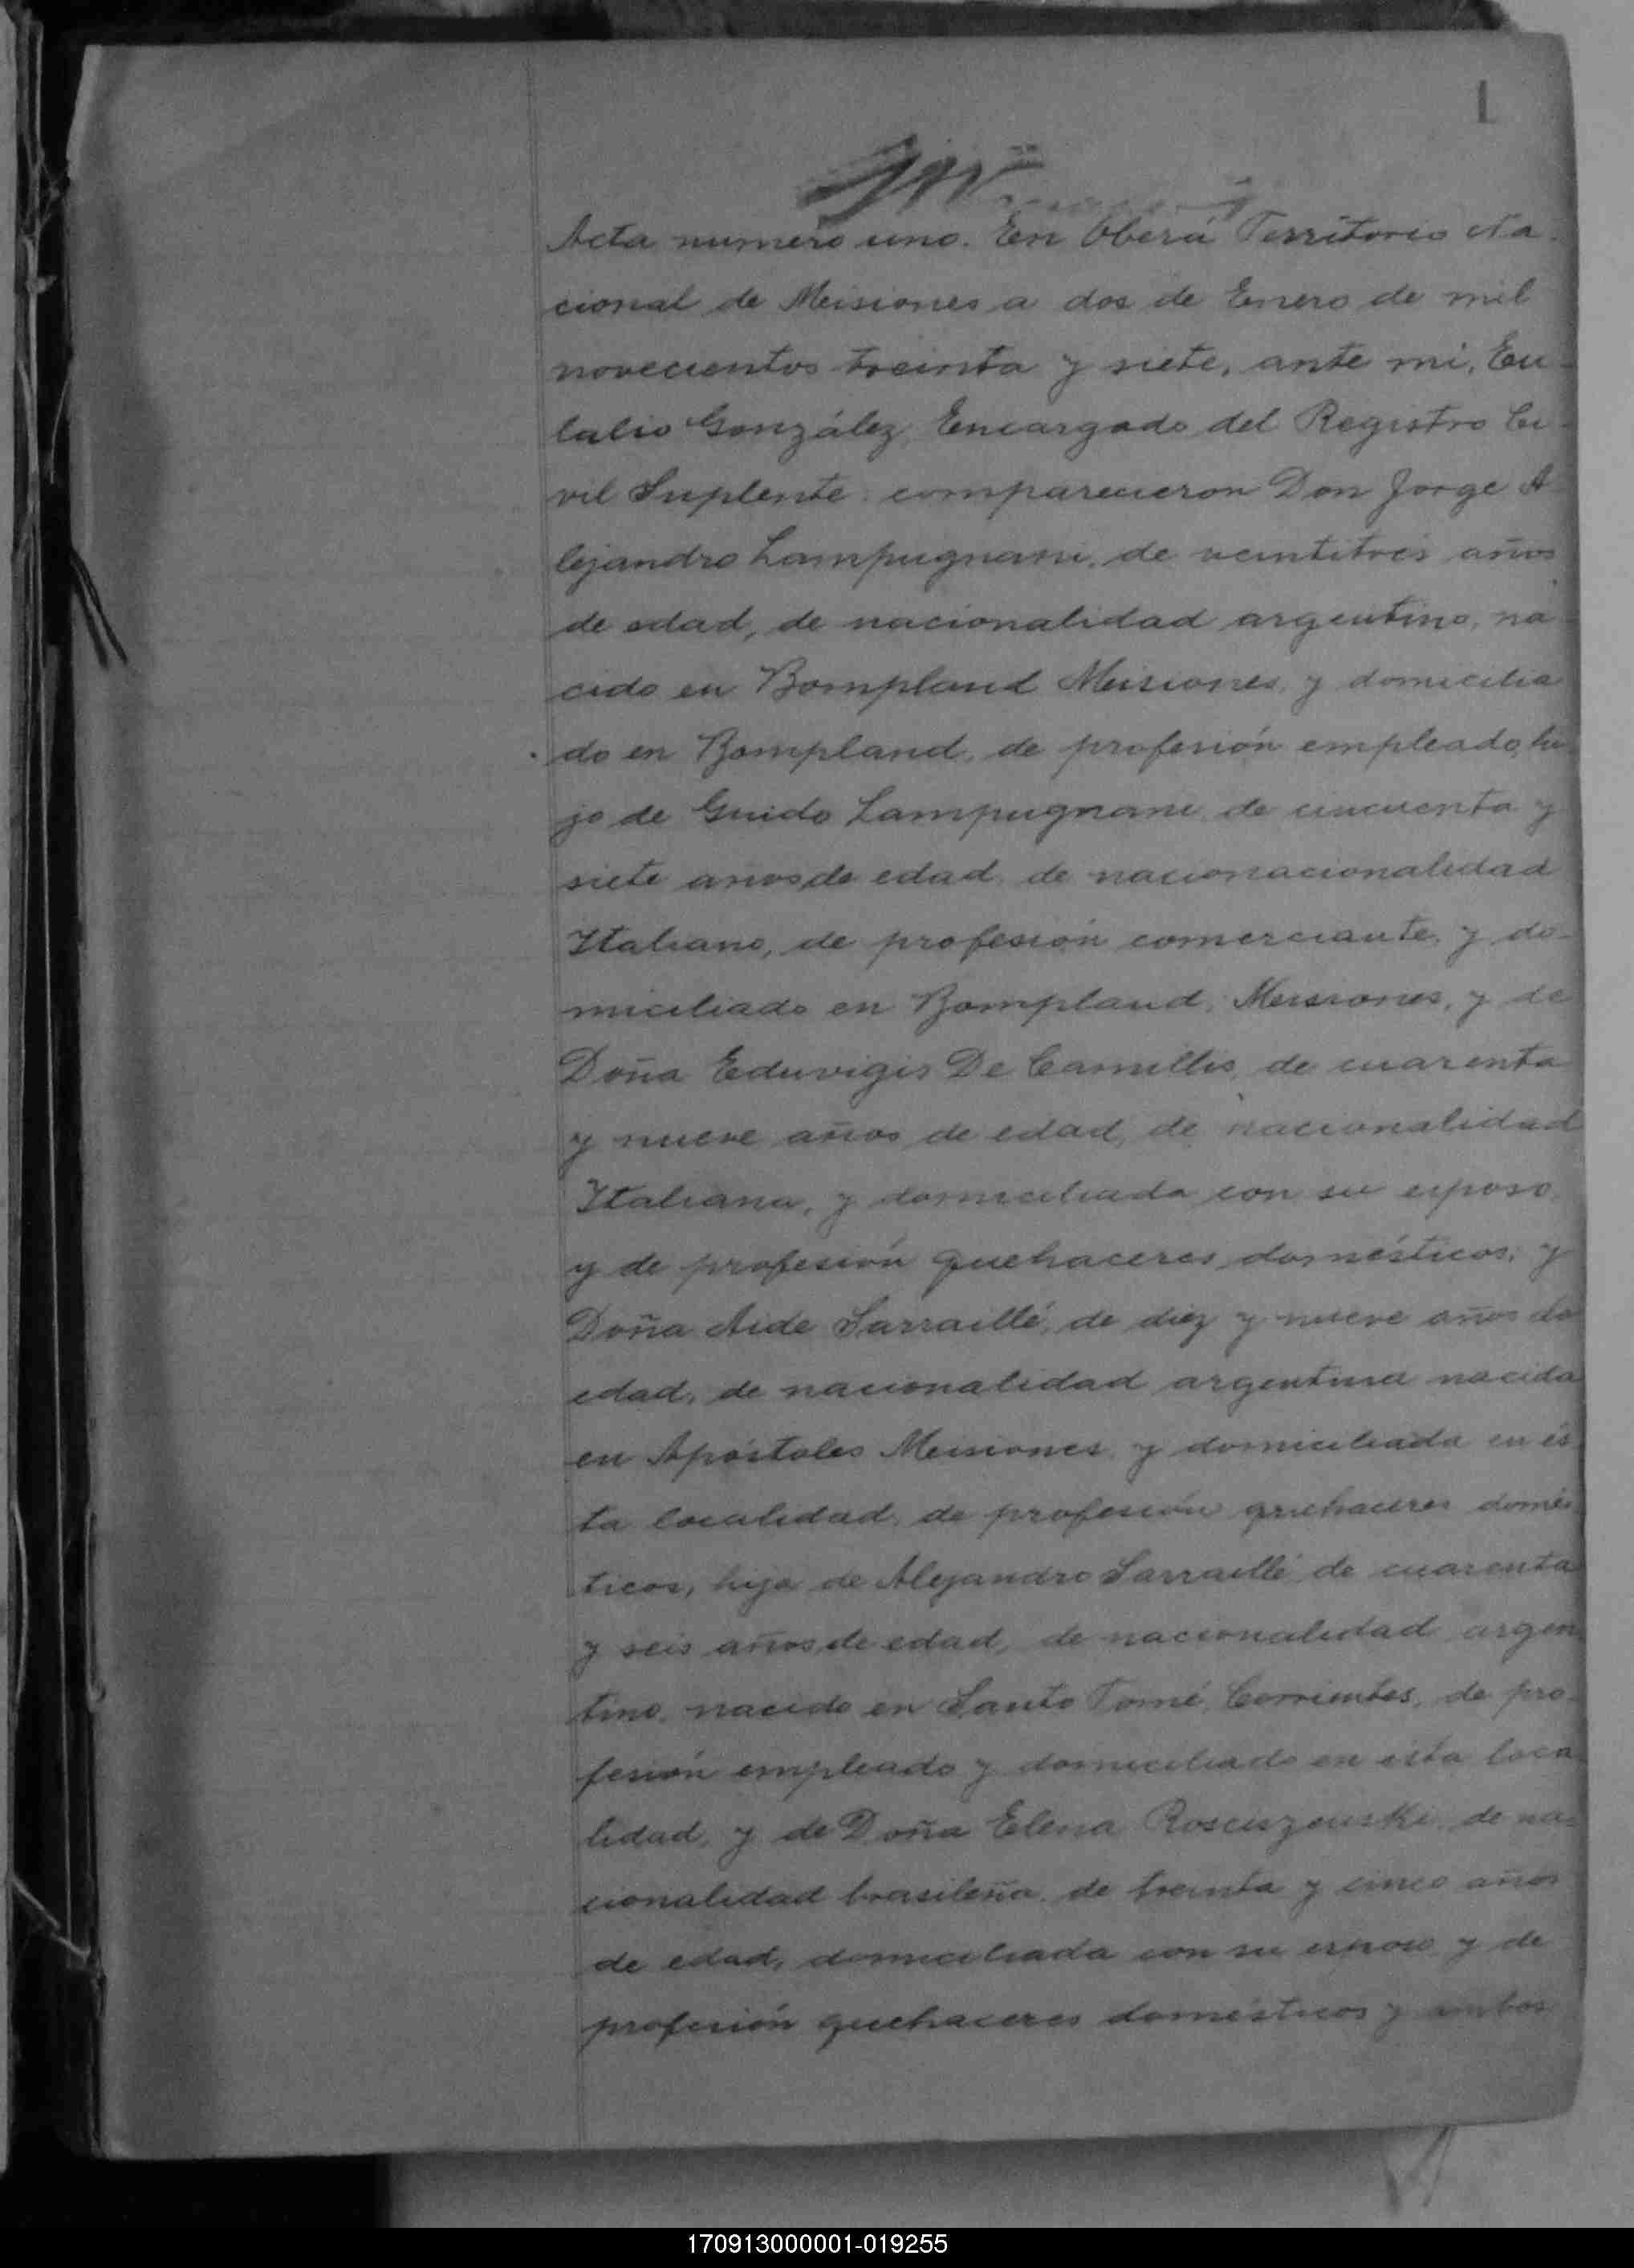 1
Acta numero uno. En Oberá Territorio Na
cional de Misiones a dos de Enero de mil
novecientos treinta y siete, ante mi, Eu
lalio González, Encargado del Registro Ci
vil Suplente: comparecieron Don Jorge A
lejandro Lampugnani, de veintitres años
de edad, de nacionalidad argentino, na
cido en Bompland Misiones, y domicilia
do en Bompland, de profesión empleado, hi
jo de Guido Lampugnani, de cincuenta y
siete años de edad, de nacionacionalidad
Italiano, de profesión comerciante, y do-
miciliado en Bompland, Misiones, y de
Doña Eduvigis De Camillis, de cuarenta
y nueve años de edad, de nacionalidad
Italiana, y domiciliada con su esposo,
y de profesión quehaceres domésticos, y
Doña Aide Sarraillé, de diez y nueve años de
edad, de nacionalidad argentina nacida
en Apóstoles Misiones, y domiciliada en és
ta localidad, de profesión quehaceres domés
ticos, hija de Alejandro Sarraillé de cuarenta
y seis años de edad, de nacionalidad argen
tino, nacido en Santo Tomé, Corrientes, de pro
fesión empleado y domiciliado en ésta loca
lidad, y de Doña Elena Rosciszouski, de na
cionalidad brasileña, de treinta y cinco años
de edad, domiciliada con su esposo y de
profesión quehaceres domésticos y ambos
170913000001-019255